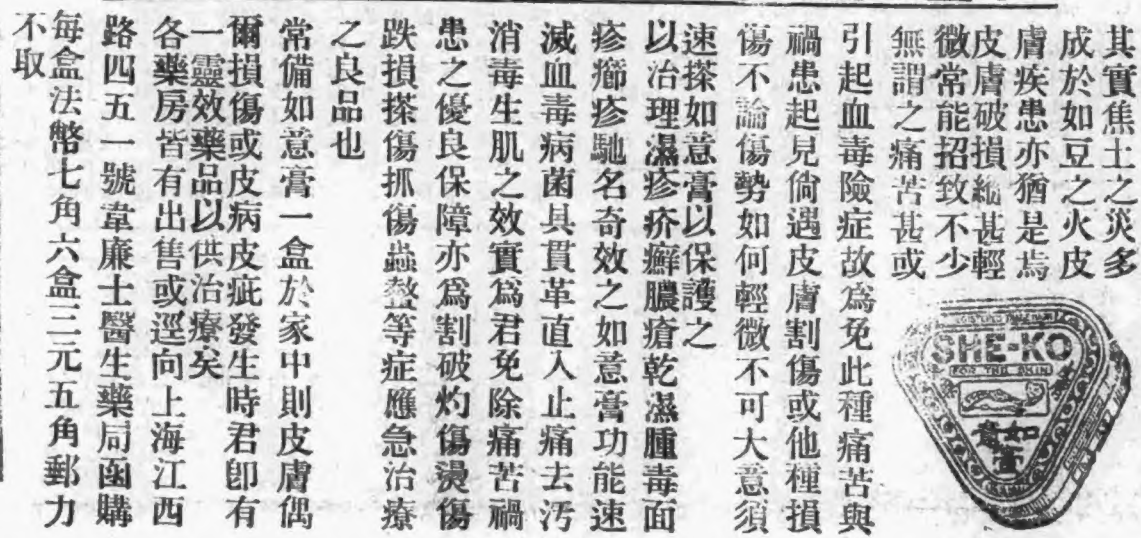 其實焦土之災多
成於如豆之火皮
膚疾患亦猶是焉
皮膚破損縱甚輕
微常能招致不少
無謂之痛苦甚或
引起血毒險症故爲免此種痛苦與
禍患起見倘遇皮膚割傷或他種損
傷不論傷勢如何輕微不可大意須
速搽如意膏以保護之
以治理濕疹疥癬膿瘡乾濕腫毒面
疹癤疹馳名奇效之如意膏功能速
滅血毒病菌具貫革直入止痛去汚
消毒生肌之效實爲君免除痛苦禍
患之優良保障亦爲割破灼傷燙傷
跌損搽傷抓傷蟲螫等症應急治療
之良品也
常備如意膏一盒於家中則皮膚偶
爾損傷或皮病皮疵發生時君卽有
一靈效藥品以供治療矣
各藥房皆有出售或逕向上海江西
路四五一號韋廉士醫生藥局函購
每盒法幣七角六盒三元五角郵力
不取
SHE-KO
FOR THE SKIN
如意膏